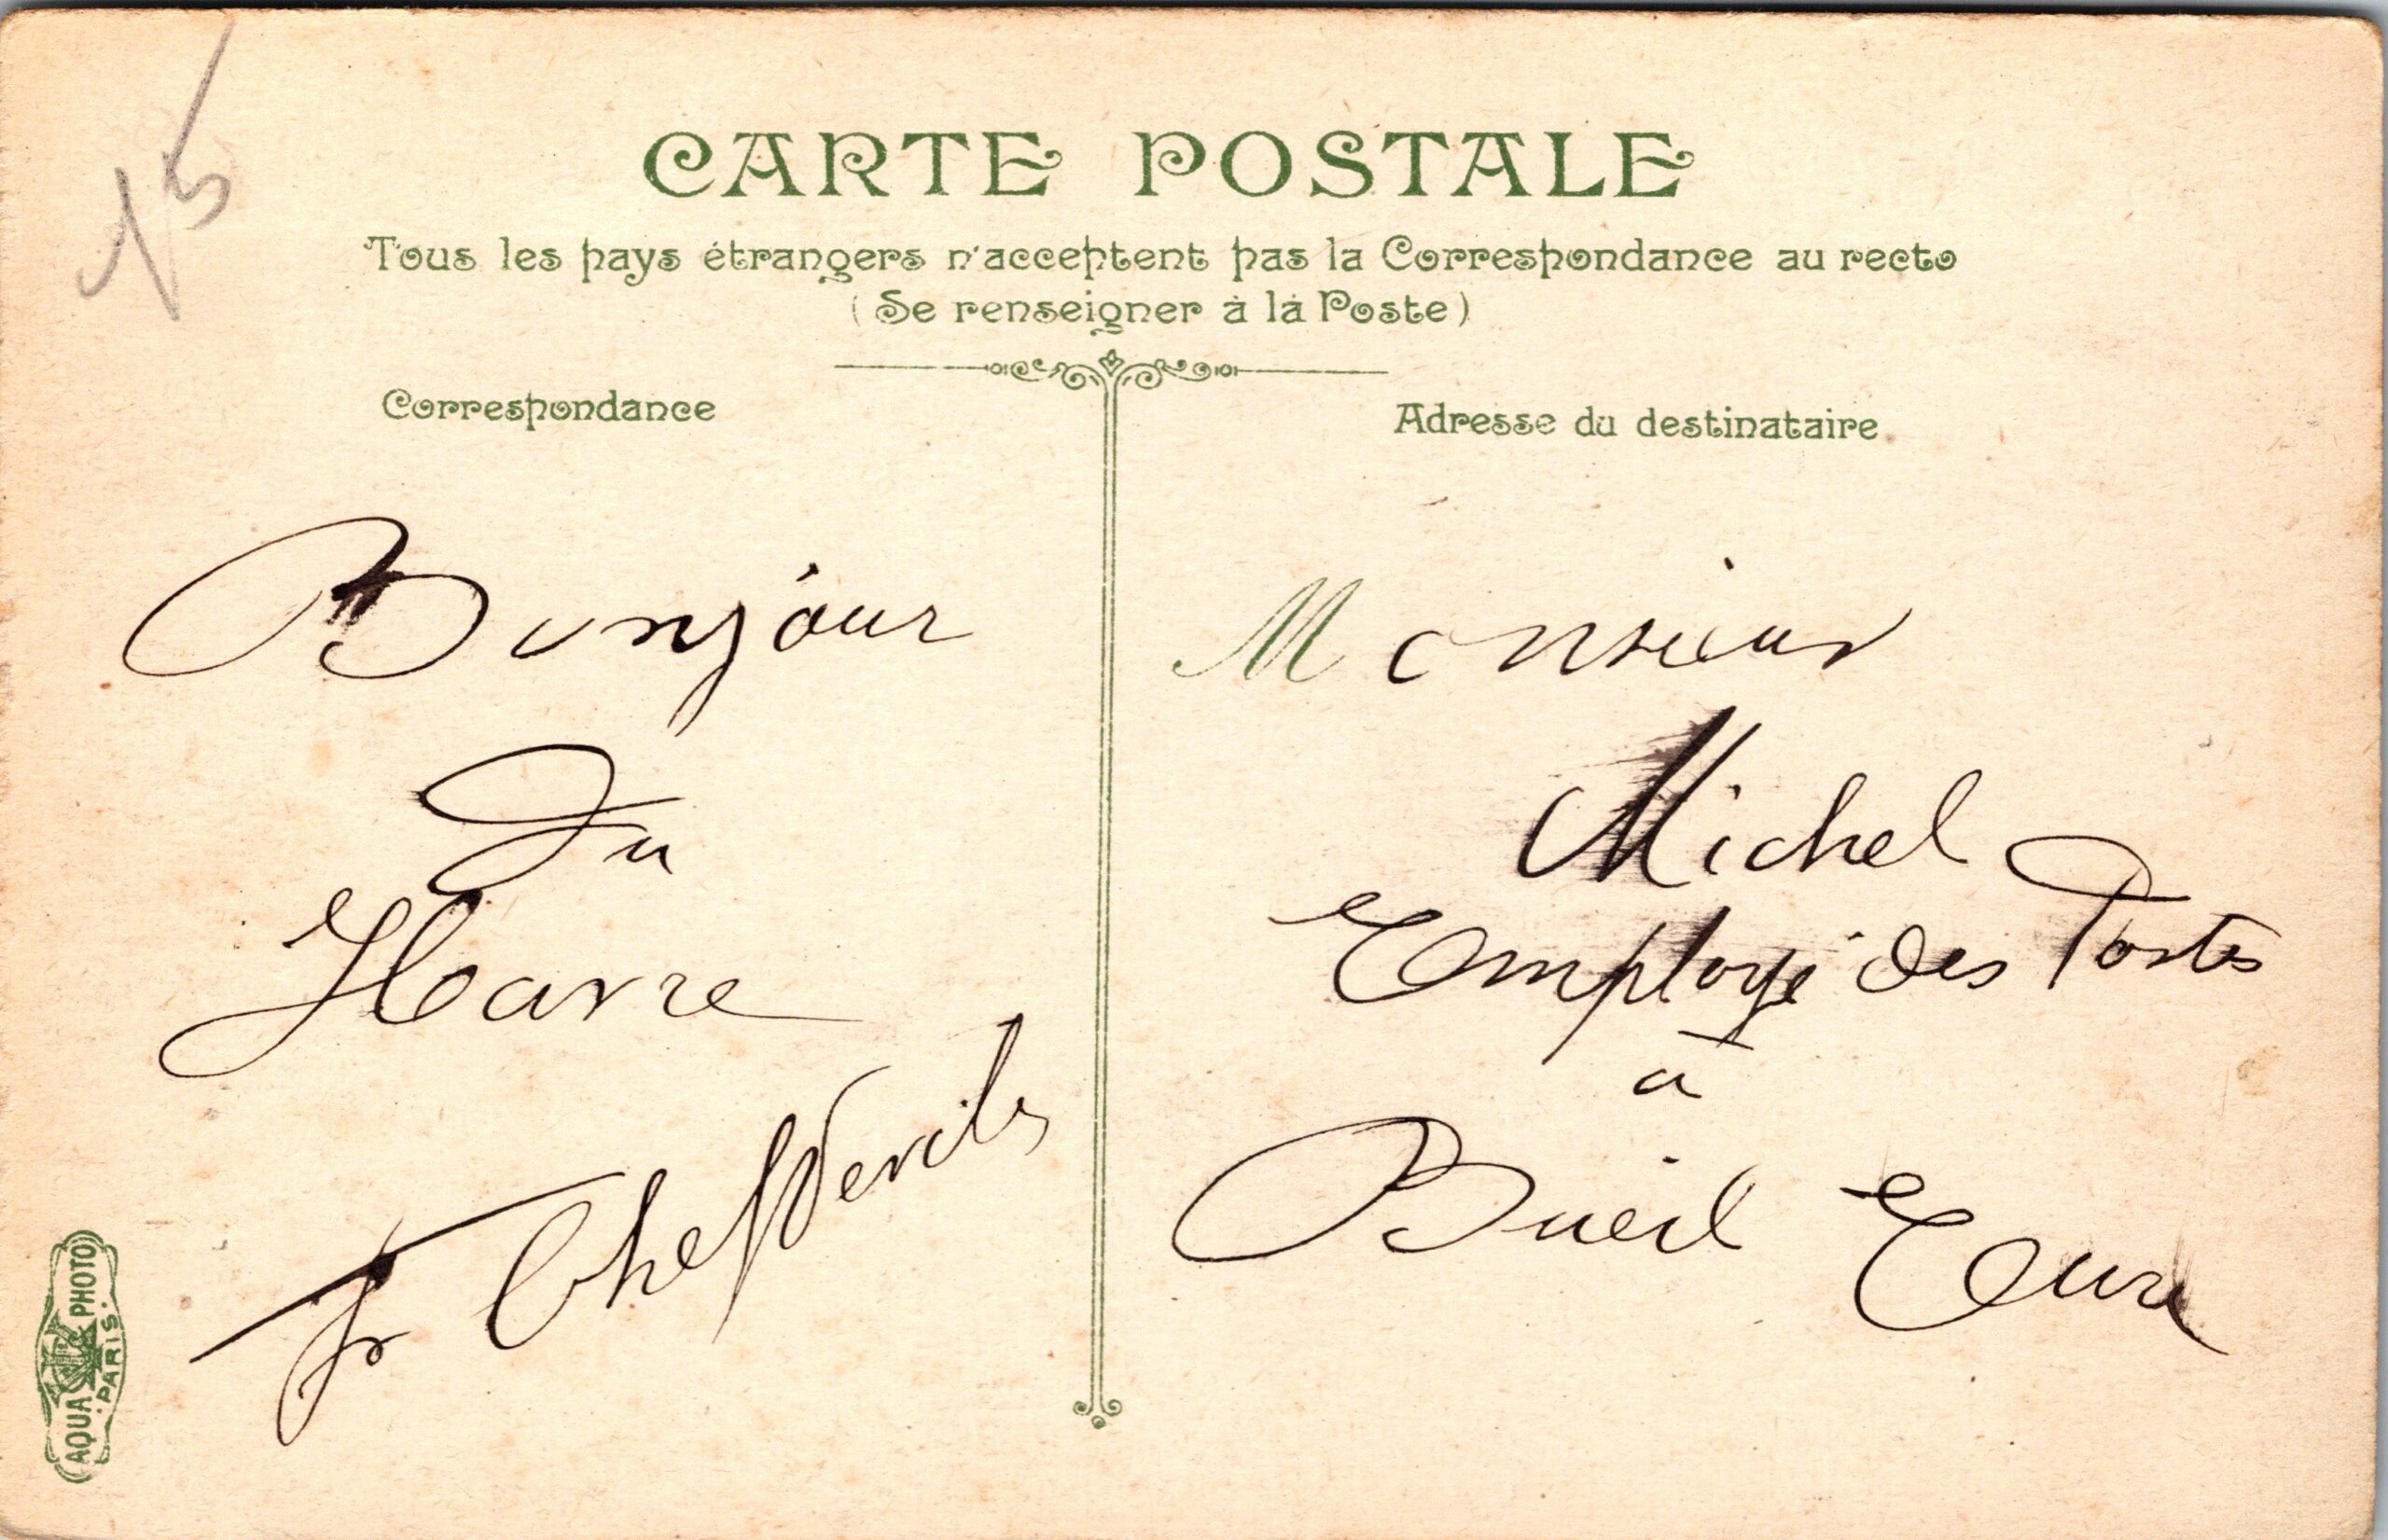 15
CARTE POSTALE
Tous les pays étrangers n'acceptent pas la Correspondance au recto
(Se renseigner à la Poste)
Correspondance
Adresse du destinataire
Bonjour
Du
Havre
Monsieur
Michel
Employé des Postes
à
Bueil Eure
AQUA PHOTO
PARIS